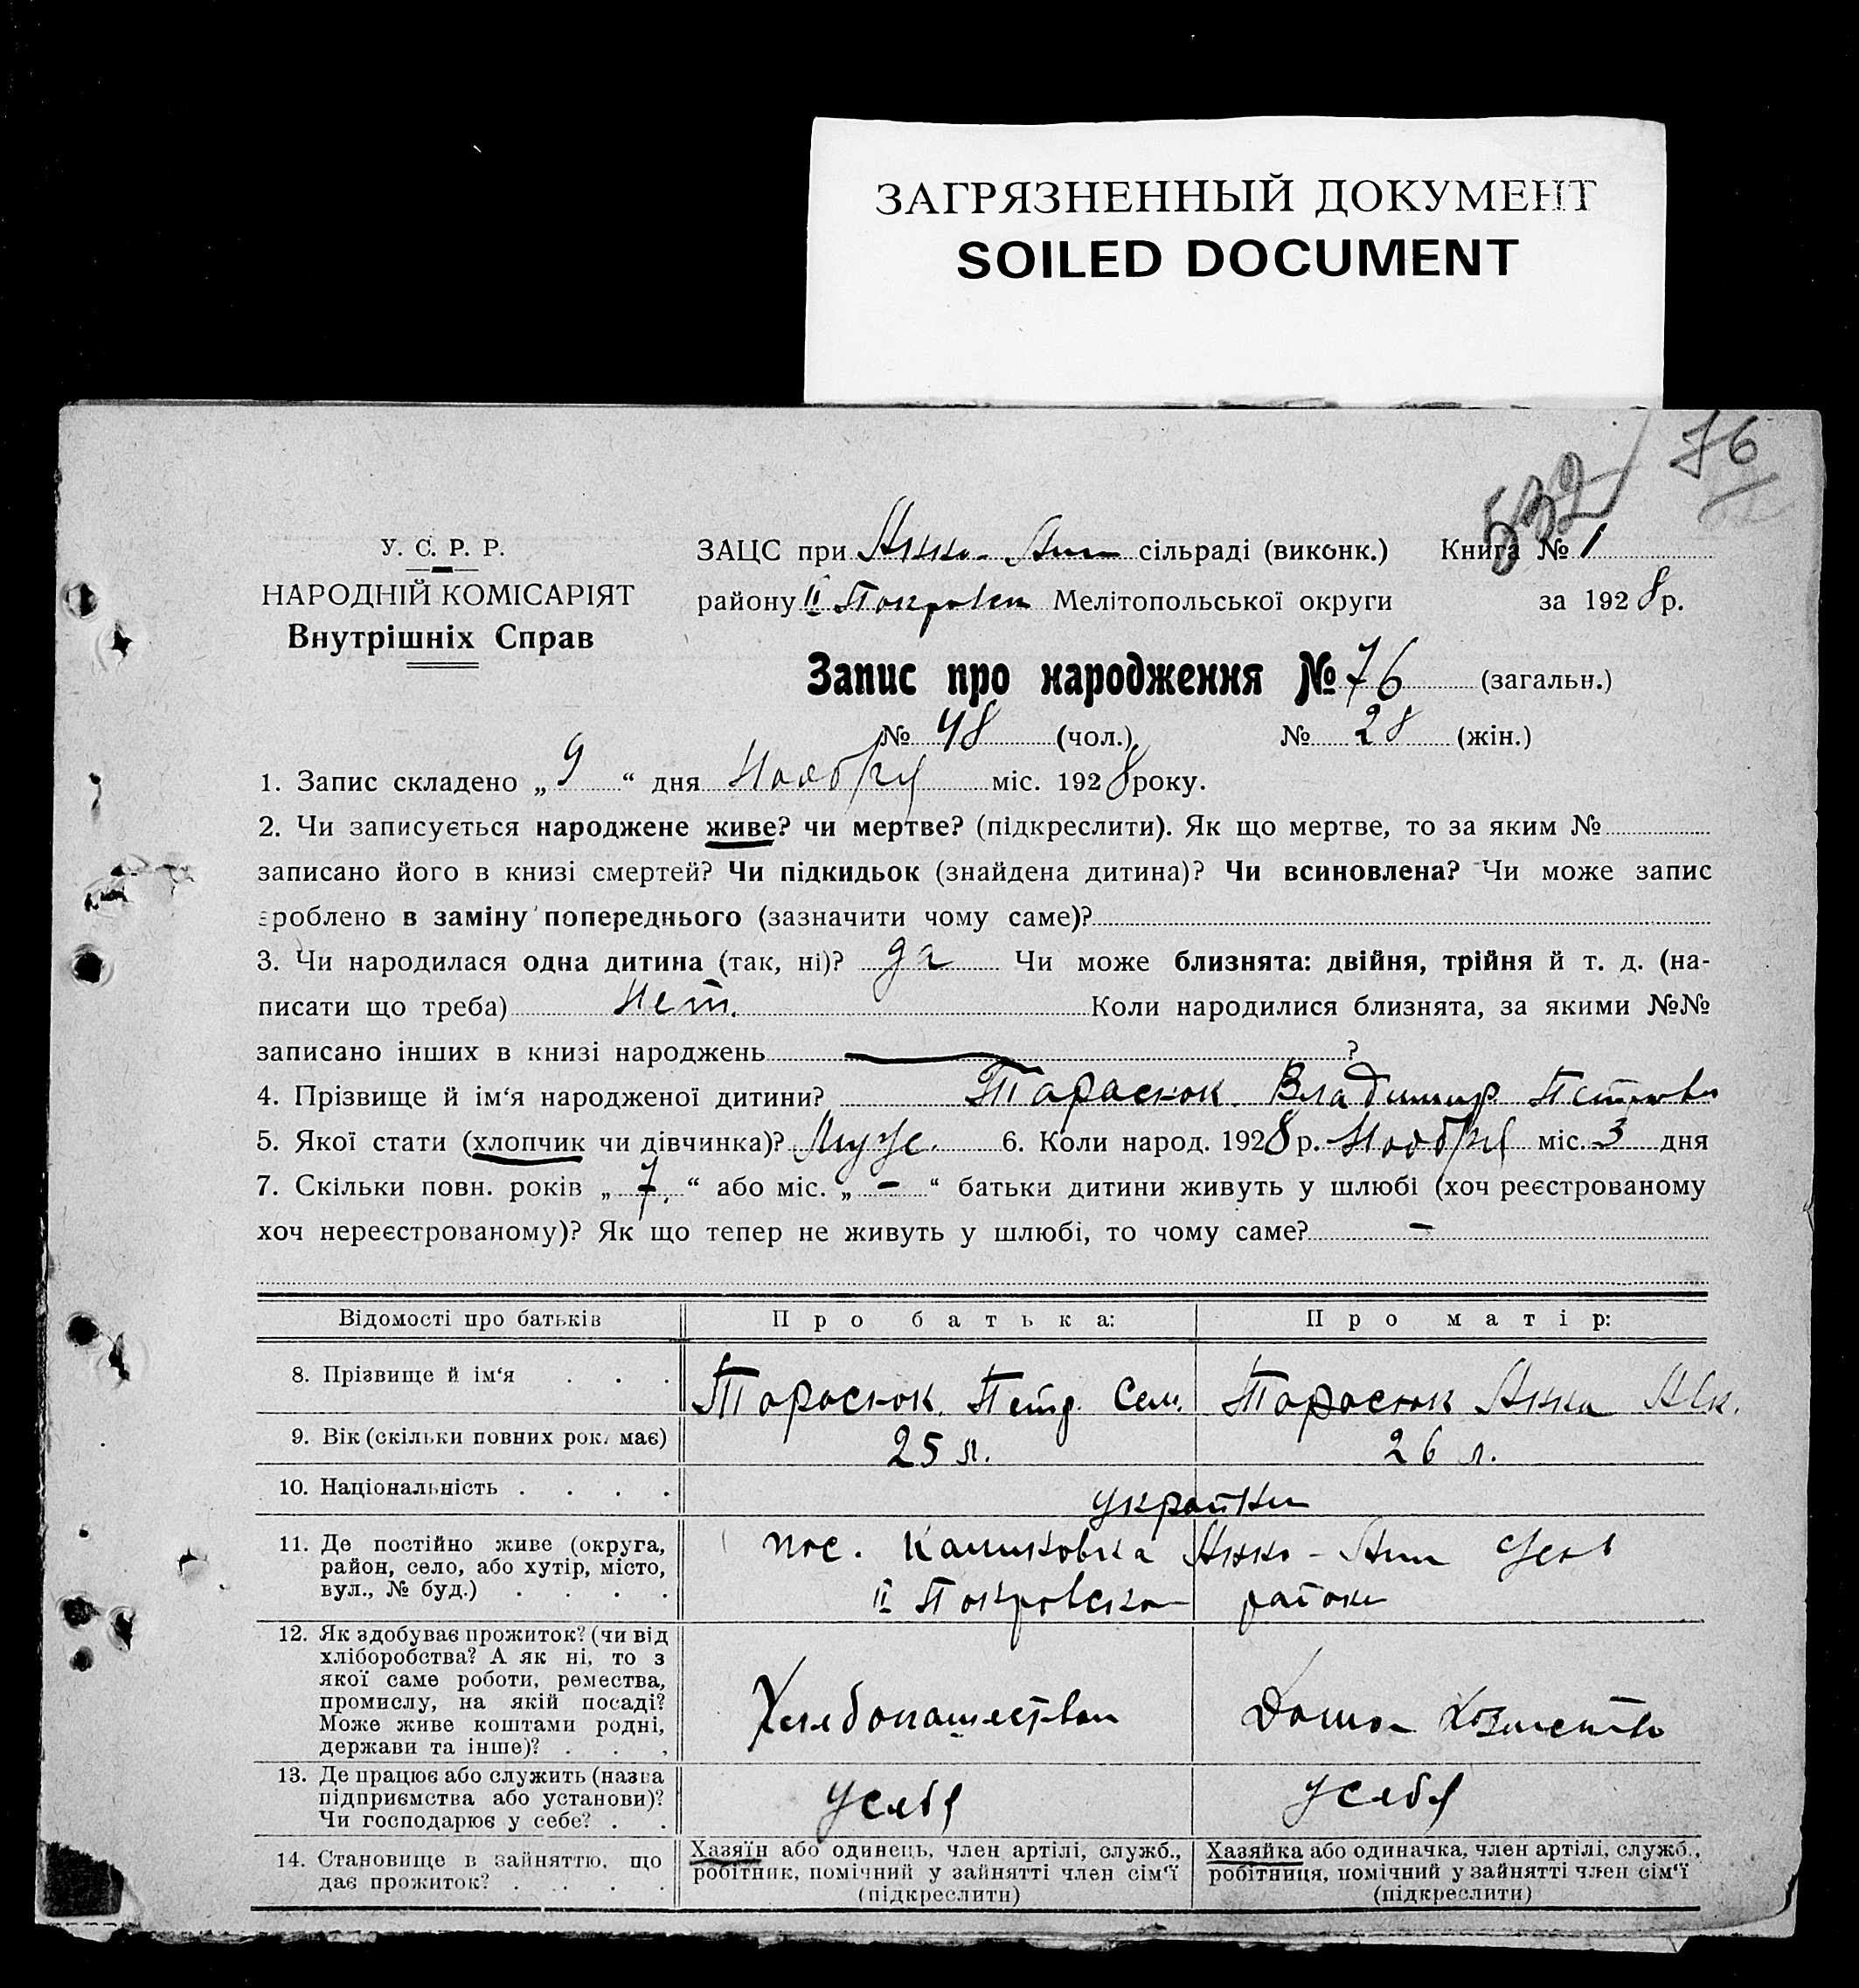 ЗАГРЯЗНЕННЫЙ ДОКУМЕНТ
SOILED DOCUMENT
76
532
У. С. Р. Р.
НАРОДНІЙ КОМІСАРІЯТ
Внутрішніх Справ
ЗАЦС при сільраді (виконк.) Книга № 1
району ІІ Покровск Мелітопольської округи за 1928 р.
Запис про народження № 76 (загальн.)
№ 48 (чол.) № 28 (жін.)
1. Запис складено „ 9 “ дня Ноября міс. 1928 року.
2. Чи записується народжене живе? чи мертве? (підкреслити). Як що мертве, то за яким №
записано його в книзі смертей? Чи підкидьок (знайдена дитина)? Чи всиновлена? Чи може запис
зроблено в заміну попереднього (зазначити чому саме)?
3. Чи народилася одна дитина (так, ні)? да Чи може близнята: двійня, трійня й т. д. (на-
писати що треба) Нет. Коли народилися близнята, за якими №№
записано інших в книзі народжень ?
4. Прізвище й ім‘я народженої дитини? Тарасюк Владимир Петров
5. Якої стати (хлопчик чи дівчинка)? Муж. 6. Коли народ. 1928 р. Ноября міс. 3 дня
7. Скільки повн. років „ 7 “ або міс. „ – “ батьки дитини живуть у шлюбі (хоч реєстрованому
хоч нереєстрованому)? Як що тепер не живуть у шлюбі, то чому саме? –
Відомості про батьків Про батька: Про матір:
8. Прізвище й ім‘я . . . Тарасюк Петр. Сем. Тарасюк Анна
9. Вік (скільки повних рок. має) 25 л. 26 л.
10. Національність . . . . украинки
11. Де постійно живе (округа,
район, село, або хутір, місто,
вул., № буд.) . . . .
пос.
ІІ Покровско района
12. Як здобуває прожиток? (чи від
хліборобства? А як ні, то з
якої саме роботи, ремества,
промислу, на якій посаді?
Може живе коштами родні,
держави та інше)? . . .
Хлебопашеством Домаш хозяйство
13. Де працює або служить (назва
підприємства або установи)?
Чи господарює у себе? . .
У себя У себя
14. Становище в зайняттю, що
дає прожиток? . . . .
Хазяїн або одинець, член артілі, служб.,
робітник, помічний у зайнятті член сім‘ї
(підкреслити)
Хазяйка або одиначка, член артілі, служб.,
робітниця, помічний у зайнятті член сім‘ї
(підкреслити)